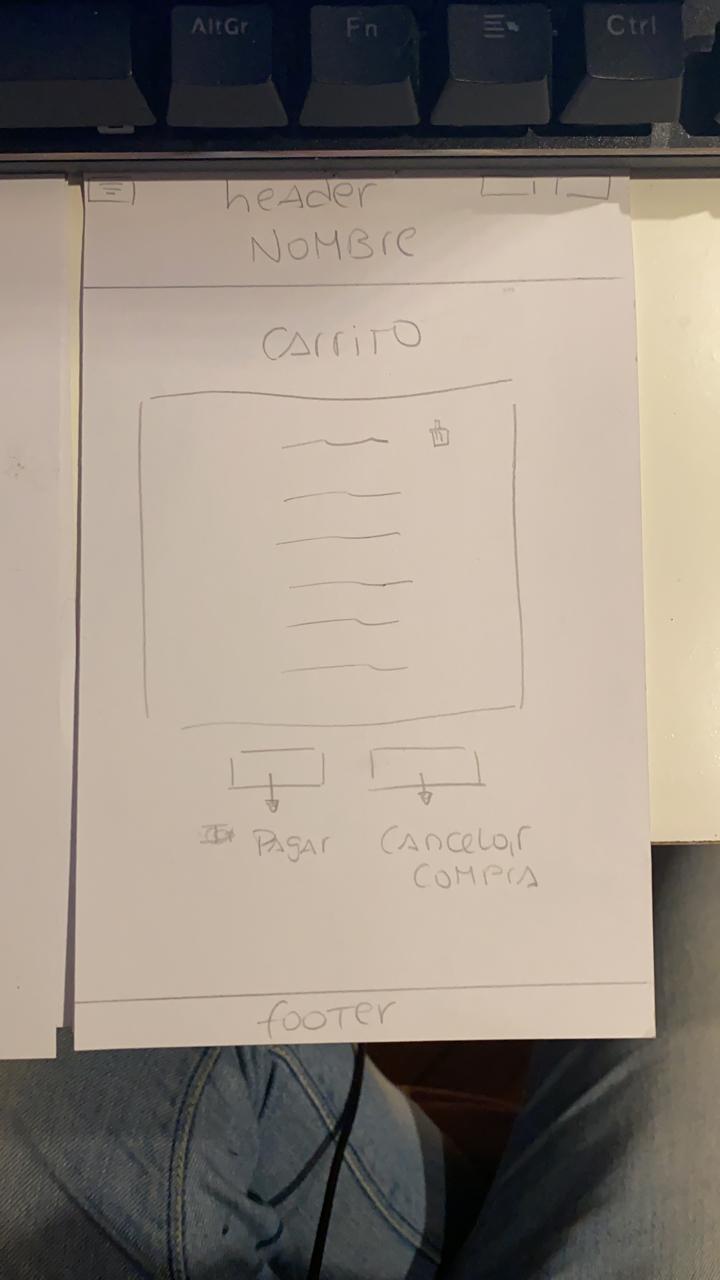 AltGr Fn Ctrl
header
NOMBre
CArriTO
PAgAr CAncelar
COMPrA
fooTer